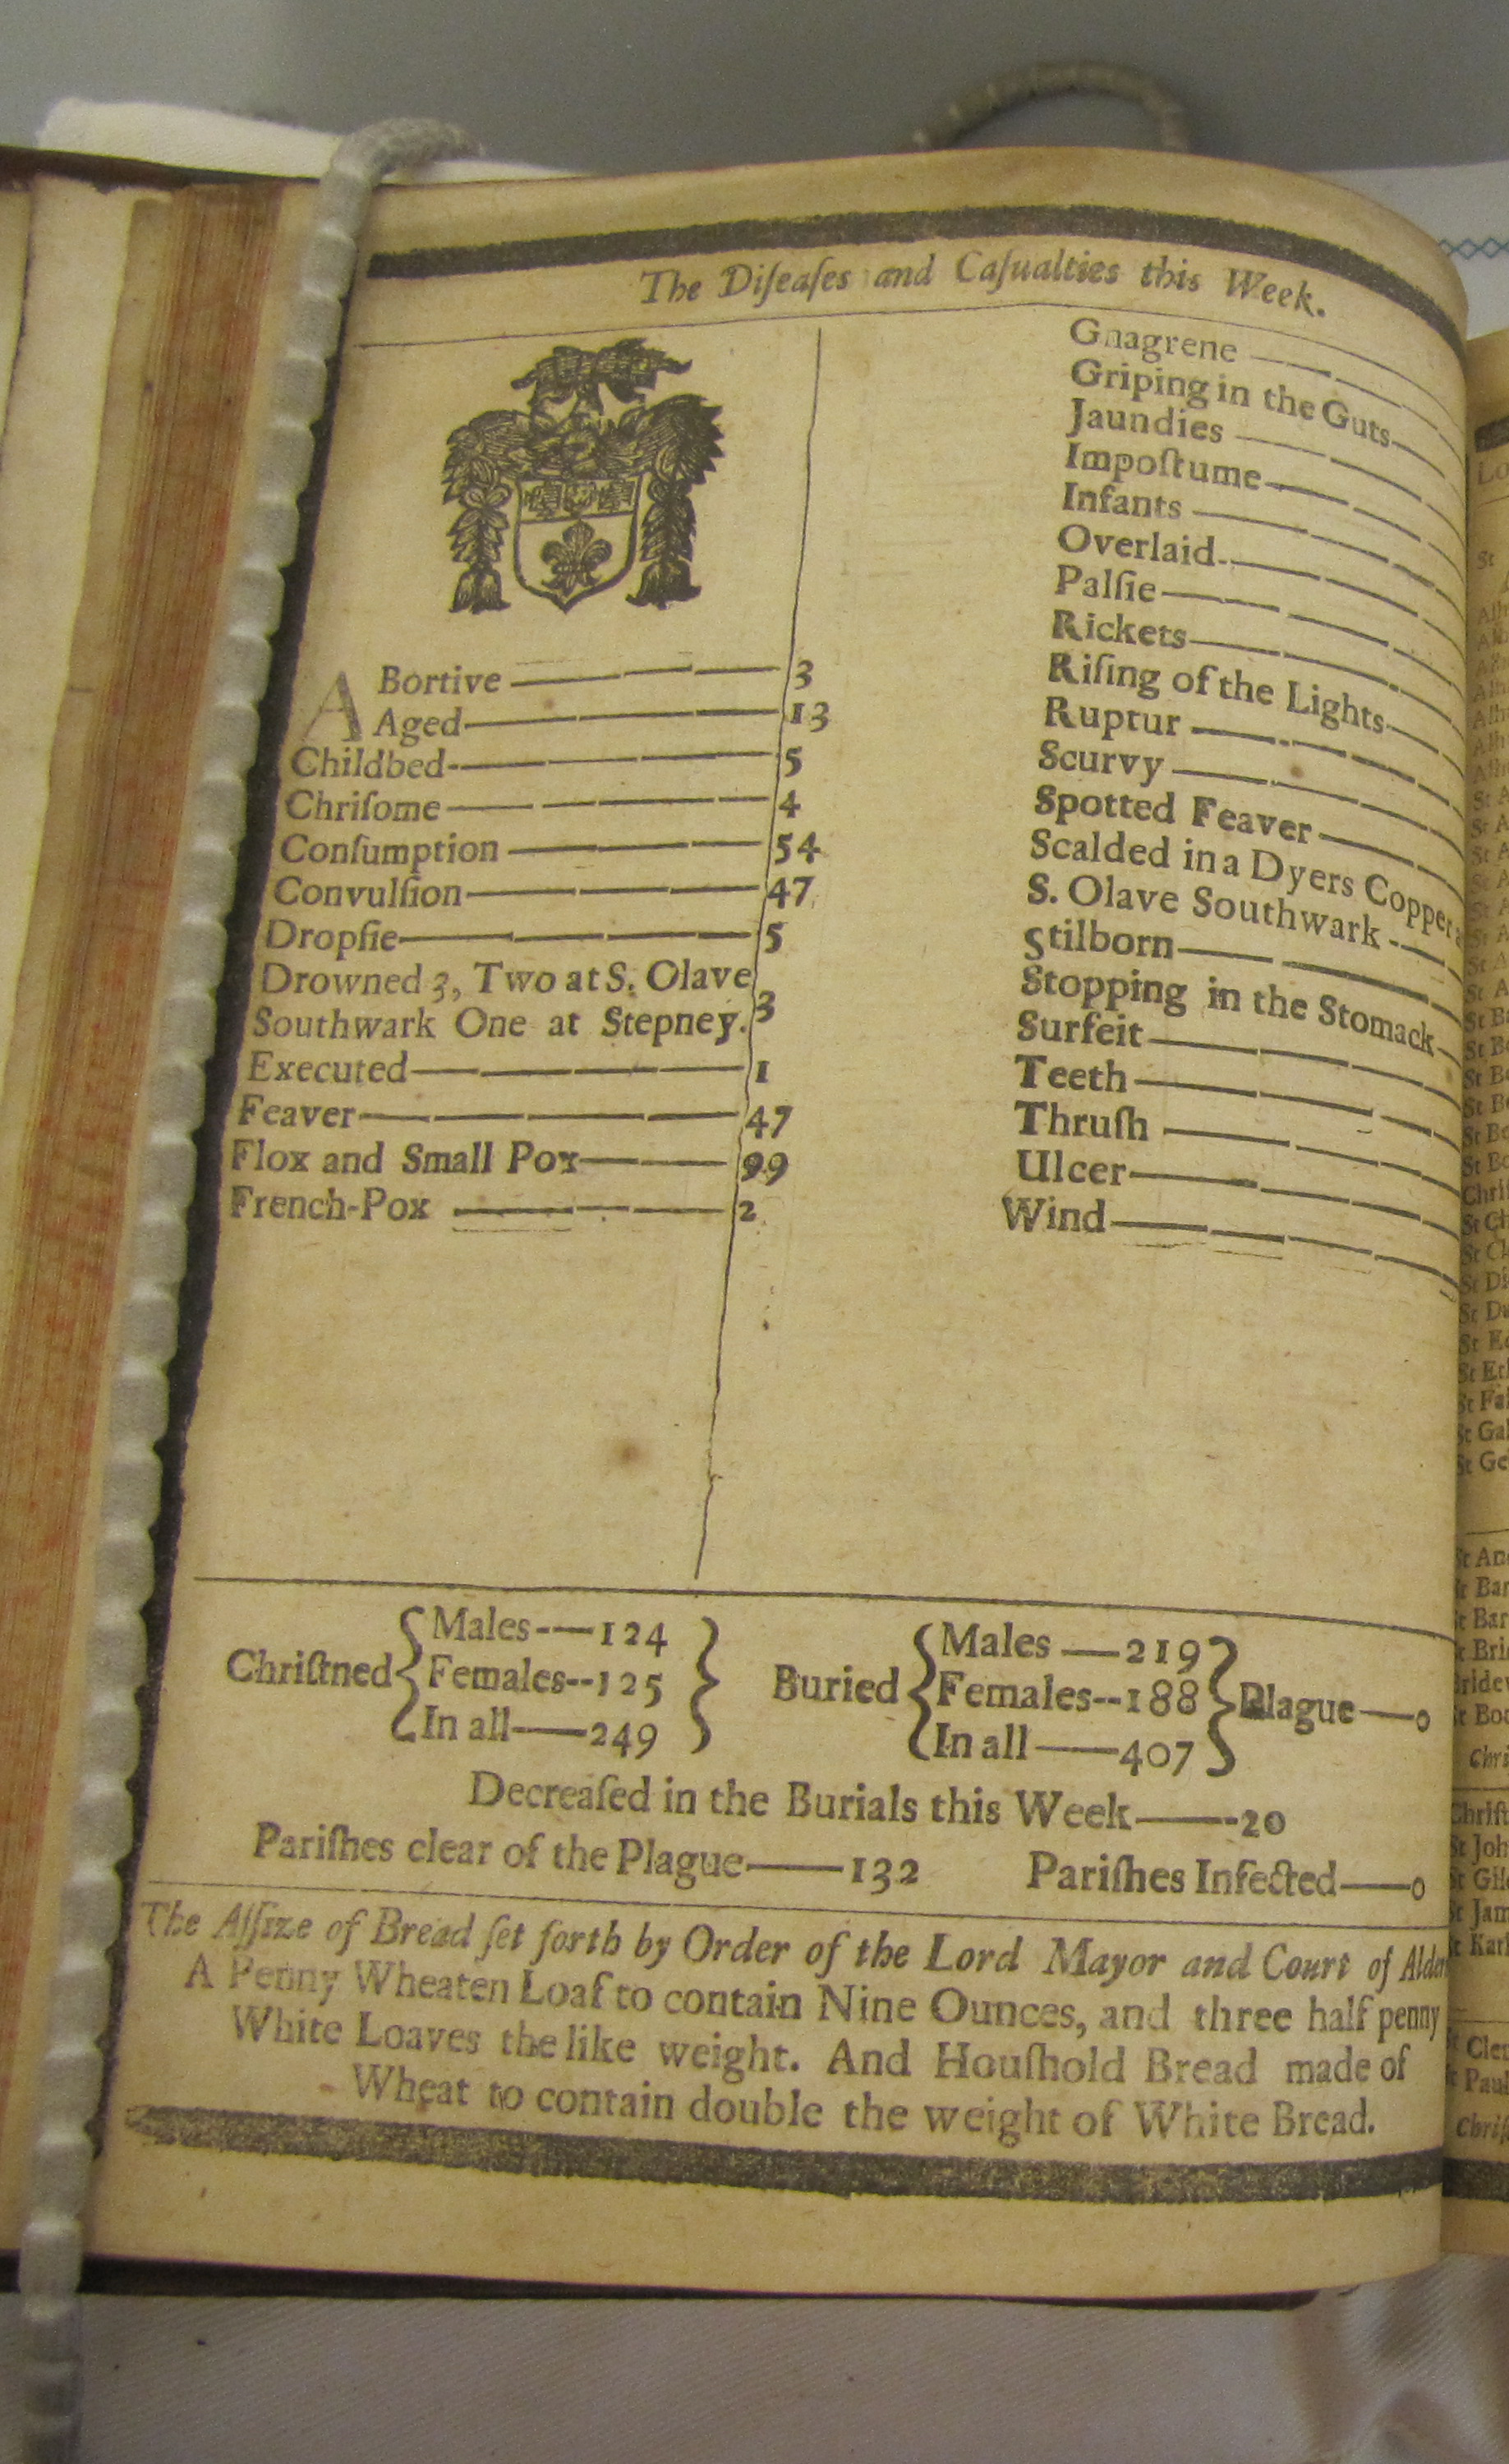 The Diſeaſes and Caſualties this Week.
ABortive 3
Aged 13
Childbed 5
Chriſome 4
Conſumption 54
Convulſion 47
Dropſie 5
Drowned 3, Two at S. Olave
Southwark One at Stepney. 3
Executed 1
Feaver 47
Flox and Small Pox 99
French-Pox 2
Gnagrene
Griping in the Guts
Jaundies
Impoſtume
Infants
Overlaid
Palſie
Rickets
Riſing of the Lights
Ruptur
Scurvy
Spotted Feaver
Scalded in a Dyers Copper
S. Olave Southwark
Stilborn
Stopping in the Stomack
Surfeit
Teeth
Thruſh
Ulcer
Wind
Chriſtned
Males 124
Females 125
In all 249
Buried
Males 219
Females 188
In all 407
Plague 0
Decreaſed in the Burials this Week 20
Pariſhes clear of the Plague 132 Pariſhes Infected 0
The Aſſize of Bread ſet forth by Order of the Lord Mayor and Court of
A Penny Wheaten Loaf to contain Nine Ounces, and three half penny
White Loaves the like weight. And Houſhold Bread made of
Wheat to contain double the weight of White Bread.